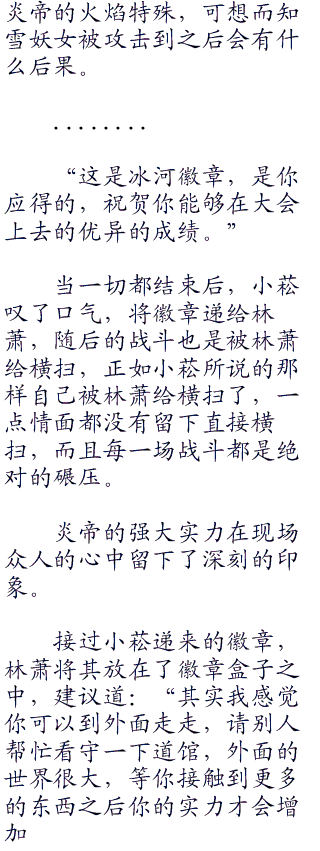 炎帝的火焰特殊，可想而知
雪妖女被攻击到之后会有什
么后果。
········
“这是冰河徽章，是你
应得的，祝贺你能够在大会
上去的优异的成绩。”
当一切都结束后，小菘
叹了口气，将徽章递给林
萧，随后的战斗也是被林萧
给横扫，正如小菘所说的那
样自己被林萧给横扫了，一
点情面都没有留下直接横
扫，而且每一场战斗都是绝
对的碾压。
炎帝的强大实力在现场
众人的心中留下了深刻的印
象。
接过小菘递来的徽章，
林萧将其放在了徽章盒子之
中，建议道：“其实我感觉
你可以到外面走走，请别人
帮忙看守一下道馆，外面的
世界很大，等你接触到更多
的东西之后你的实力才会增
加